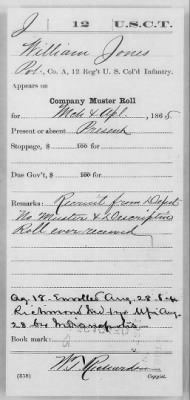 J | 12 | U.S.C.T.
William Jones
Pvt., Co. A, 12 Reg't U. S. Col'd Infantry.
Appears on
Company Muster Roll
for Mch & Apl, 1865
Present or absent Present
Stoppage, $ 100 for
Due Gov't, $ 100 for
Remarks: Recruit from Depot
No Muster & Descriptive
Roll ever received
Ag. 18. Enrolled Aug. 28. 64
Richmond Ind 1 yr. Aug
28. 64 Indianapolis
Book mark:
W. T. Richardson
(358) Copyist.